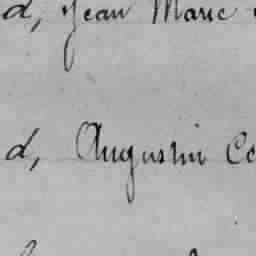 d, Jean Marie
d, Augustin Co